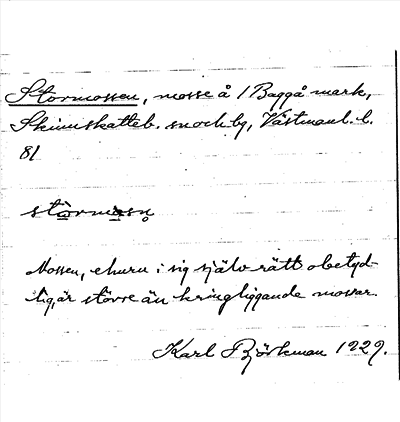 Stormossen, mosse å 1 Baggå mark,
Skinnskatteb. sn och bg, Västmanl. l.
81
stòrmo̱sn̥
Mossen, ehuru i sig själv rätt obetyd-
lig, är större än kringliggande mossar.
Karl Björkman 1929.